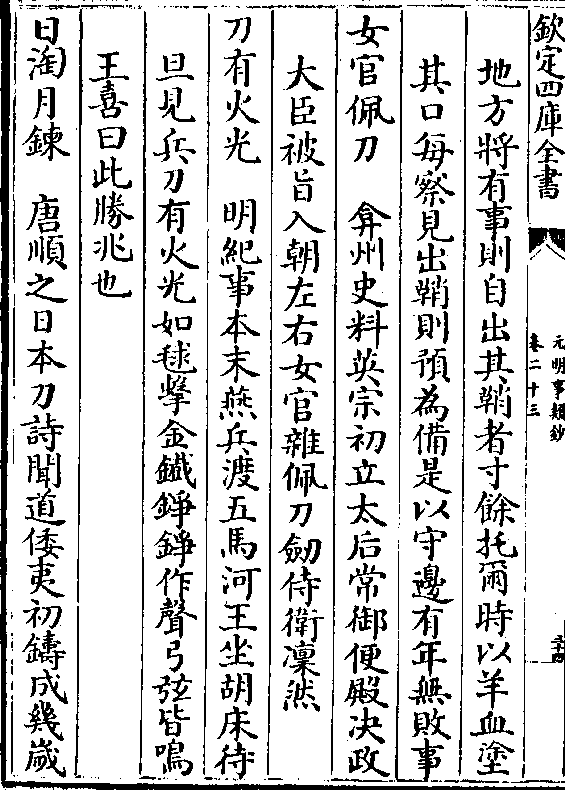 欽定四庫全書
元明事類鈔
卷二十三
三十四
地方將有事則自出其鞘者寸餘托爾時以羊血塗
其口每察見出鞘則預為備是以守邊有年無敗事
女官佩刀　弇州史料英宗初立太后常御便殿决政
大臣被旨入朝左右女官雜佩刀劒侍衛凜然
刀有火光　明紀事本末燕兵渡五馬河王坐胡床待
旦見兵刀有火光如毬擊金鐵錚錚作聲弓弦皆鳴
王喜曰此勝兆也
日淘月鍊　唐順之日本刀詩聞道倭夷初鑄成幾歲